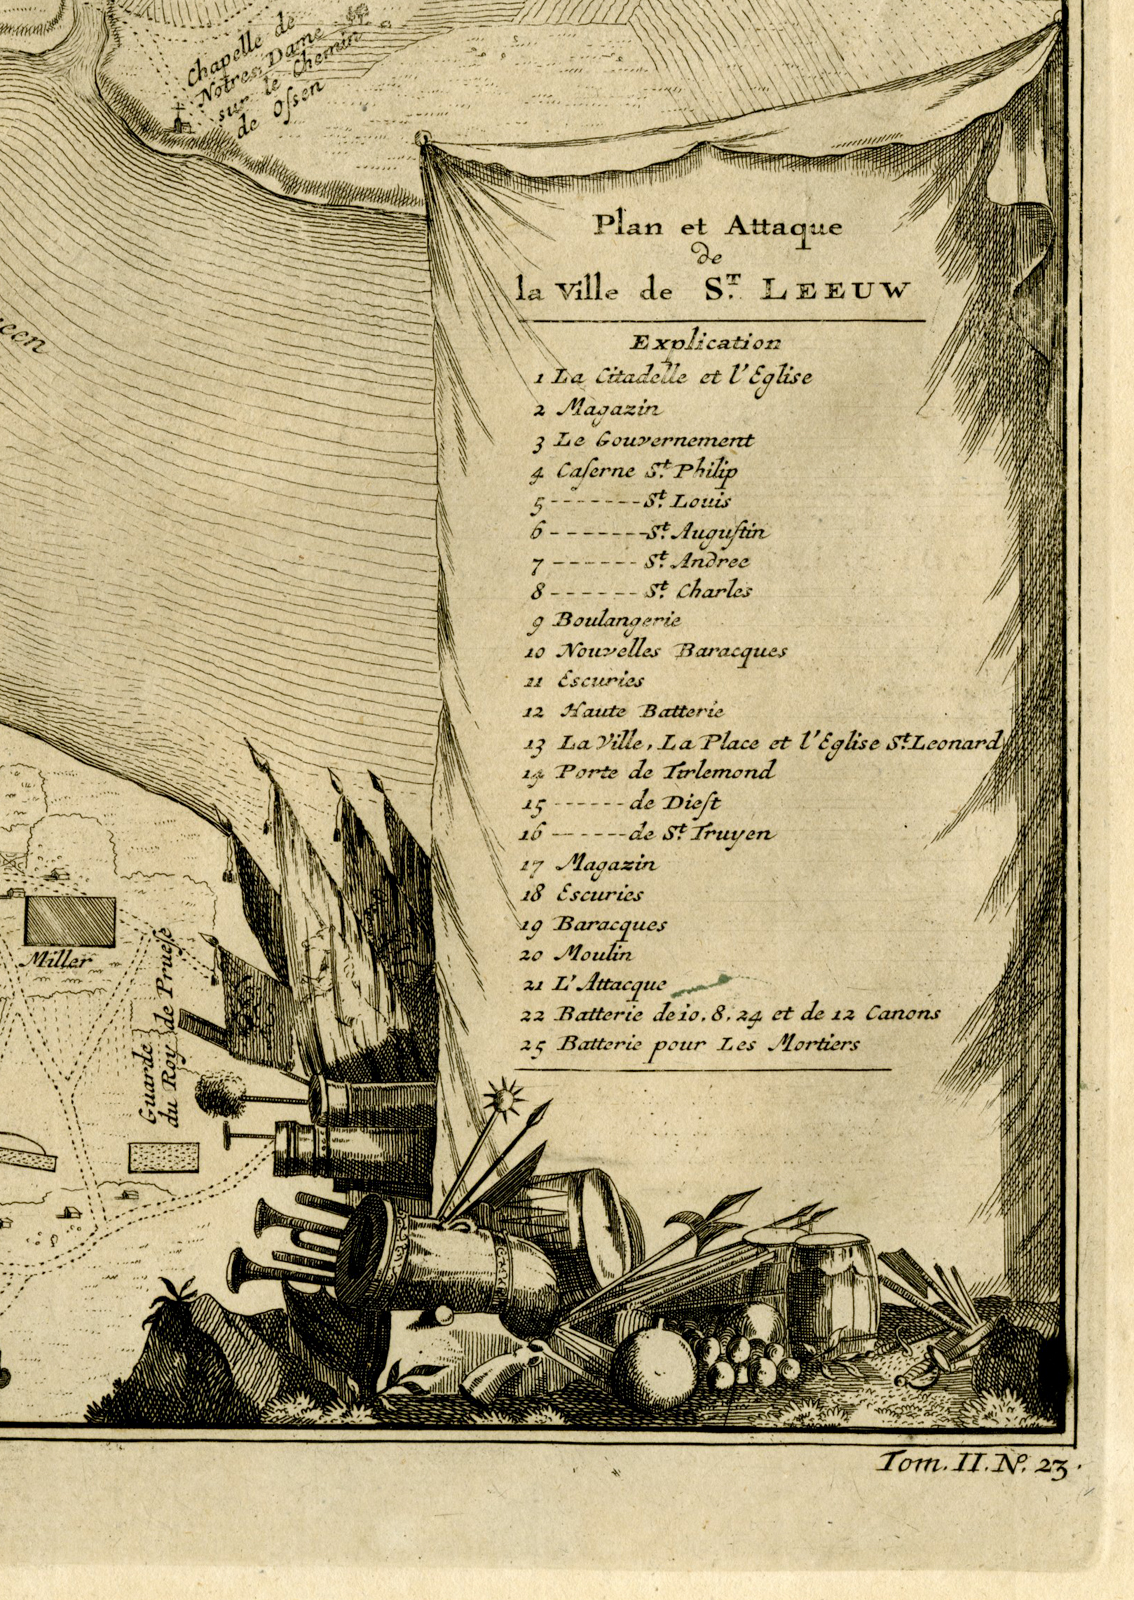 Chapelle de
Notres Dame
sur le Chemin
de Oſsen
Plan et Attaque
de
la Ville de S.T LEEUW
Explication
1 La Citadelle et l'Eglise
2 Magazin
3 Le Gouvernement
4 Caſerne S.t Philip
5 ------- S.t Louis
6 ------- S.t Auguſtin
7 ------ S.t Andree
8 ------ S.t Charles
9 Boulangerie
10 Nouvelles Baracques
11 Escuries
12 Haute Batterie
13 La Ville, La Place et l'Eglise S.t Leonard
14 Porte de Tirlemond
15 ------ de Dieſt
16 ------ de S.t Truyen
17 Magazin
18 Escuries
19 Baracques
20 Moulin
21 L'Attacque
22 Batterie de 10. 8. 24 et de 12 Canons
25 Batterie pour Les Mortiers
Miller
Guarde
du Roy de Prueſe
Tom. II. No. 23.